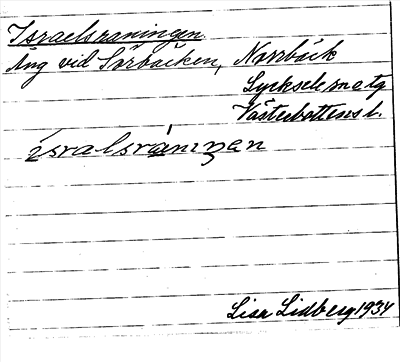 Israelsraningen
Äng vid Sörbäcken, Norrbäck
Lycksele sn o tg
Västerbottens l.
isralsräningen
Lisa Lidberg 1934